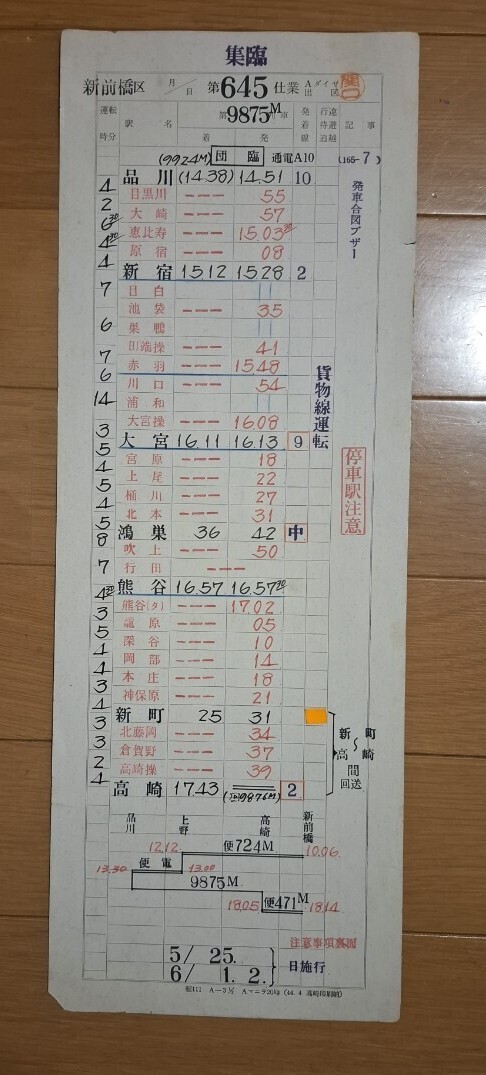 集臨
新前橋区 月/日 第645仕業 Aダイヤ出区
9875M
運転時分 駅名 着 発 発着線 行違待避追越 記事
(9924M) 団臨 通電A10 (165-7)
品川 (14.38) 14.51 10
発車合図ブザー
4 目黒川 --- 55
2 大崎 --- 57
6 30 恵比寿 --- 15.03 30
4 30 原宿 --- 08
4 新宿 15.12 15.28 2
7 目白 ||
池袋 --- 35
6 巣鴨 ||
田端操 --- 41
7 赤羽 --- 1548
6 川口 --- 54
14 浦和 |
大宮操 --- 1608
貨物線運転
3 大宮 16.11 16.13 9
5 宮原 --- 18
4 上尾 --- 22
5 桶川 --- 27
4 北本 --- 31
停車駅注意
5 鴻巣 36 42 中
8 吹上 --- 50
7 行田 ---
熊谷 16.57 16.57 20
4 20 熊谷(タ) --- 17.02
3 籠原 --- 05
5 深谷 --- 10
4 岡部 --- 14
4 本庄 --- 18
3 神保原 --- 21
4 新町 25 31
3 北藤岡 --- 34
3 倉賀野 --- 37
2 高崎操 --- 39
4 高崎 17.43 9876M) 2
新町〜高崎間回送
品川 上野 高崎 新前橋
12.12 便724M 10.06
13.30 便電 13.00
9875M
18.05 便471M 18.14
注意事項裏面
5/ 25.
6/ 1. 2. 日施行